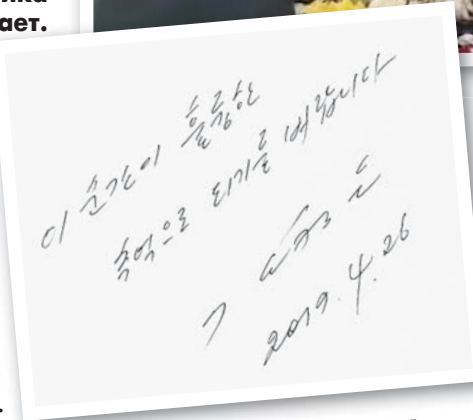 ает.
이 순간이 훌륭한
추억으로 되기를 바랍니다
2019. 4. 26